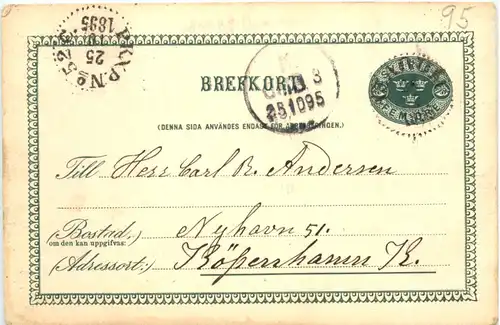 95
PKXP.Nº523
25
10
1895
BREFKORT
25.10 95
(DENNA SIDA ANVÄNDES ENDAST FÖR ADRESSERINGEN.)
Till Herr Carl R. Andersen
(Bostad.) Nyhavn 51.
om den kan uppgifvas:
(Adressort.) Köpenhamn K.